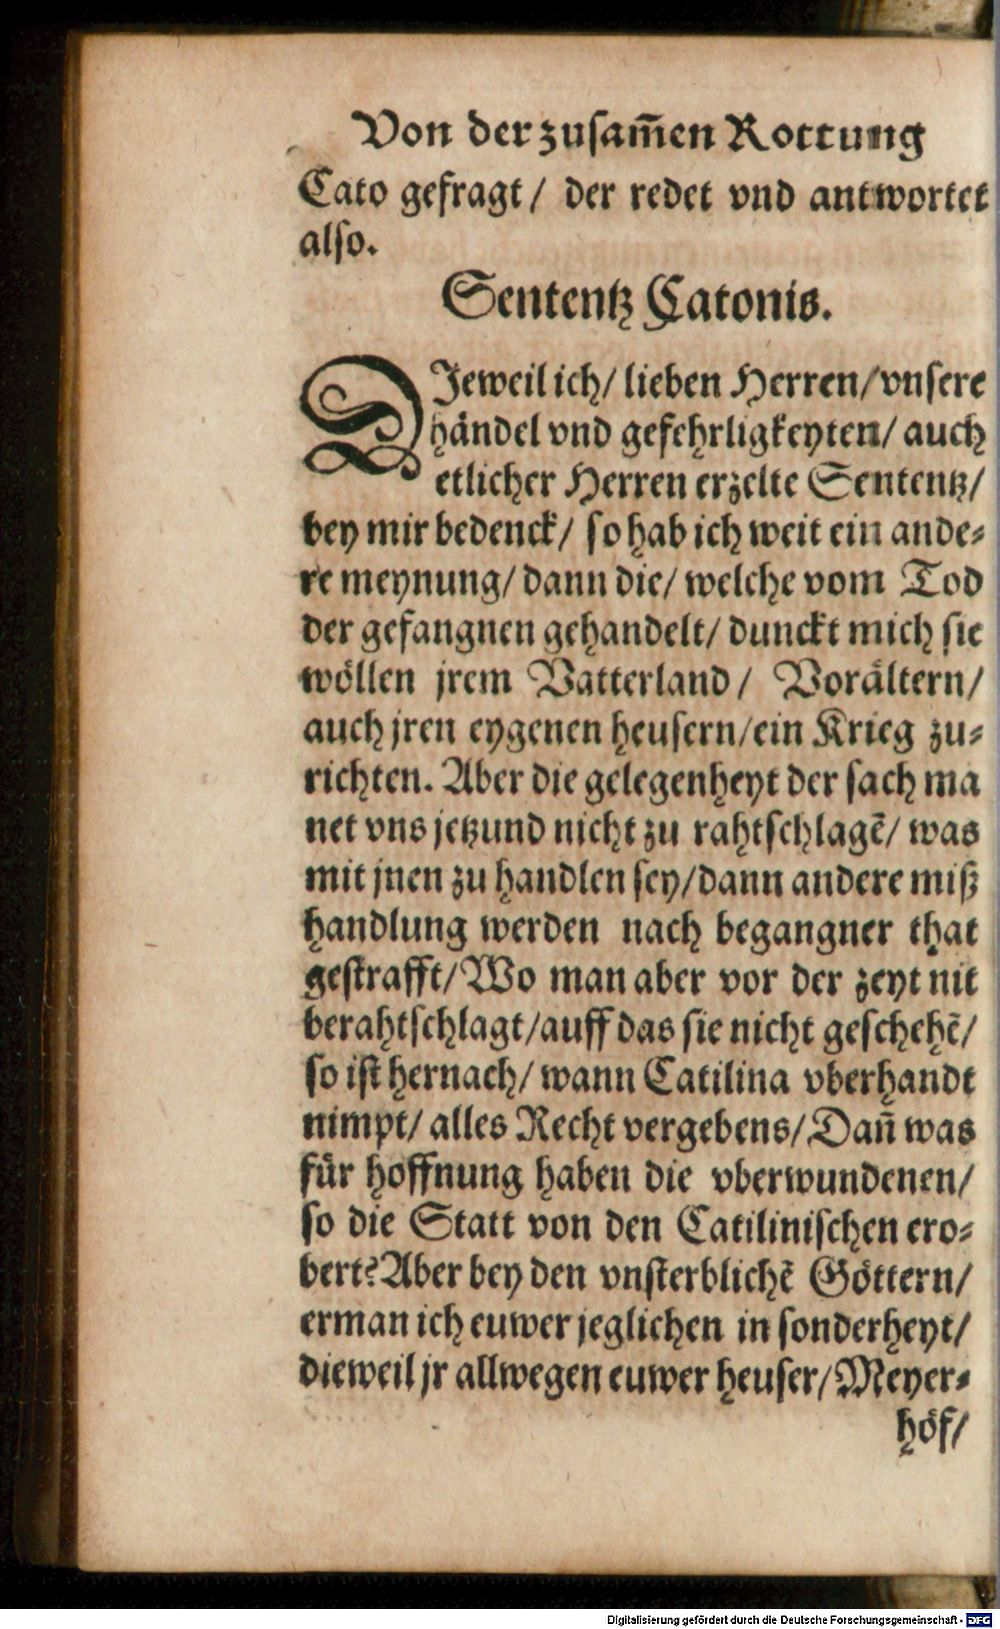 Von der zusam̃en Rottung
Cato gefragt / der redet vnd antwortet
also.
Sententz Catonis.
DJeweil ich / lieben Herren / vnsere
händel vnd gefehrligkeyten / auch
etlicher Herren erzelte Sententz /
bey mir bedenck / so hab ich weit ein ande⸗
re meynung / dann die / welche vom Tod
der gefangnen gehandelt / dunckt mich sie
wöllen jrem Vatterland / Vorältern /
auch jren eygenen heusern / ein Krieg zu⸗
richten. Aber die gelegenheyt der sach ma
net vns jetzund nicht zu rahtschlagẽ / was
mit jnen zu handlen sey / dann andere miß
handlung werden nach begangner that
gestrafft / Wo man aber vor der zeyt nit
berahtschlagt / auff das sie nicht geschehẽ /
so ist hernach / wann Catilina vberhandt
nimpt / alles Recht vergebens / Dañ was
für hoffnung haben die vberwundenen /
so die Statt von den Catilinischen ero⸗
bert? Aber bey den vnsterblichẽ Göttern /
erman ich euwer jeglichen in sonderheyt /
dieweil jr allwegen euwer heuser / Meyer⸗
höf /
Digitalisierung gefördert durch die Deutsche Forschungsgemeinschaft - DFG